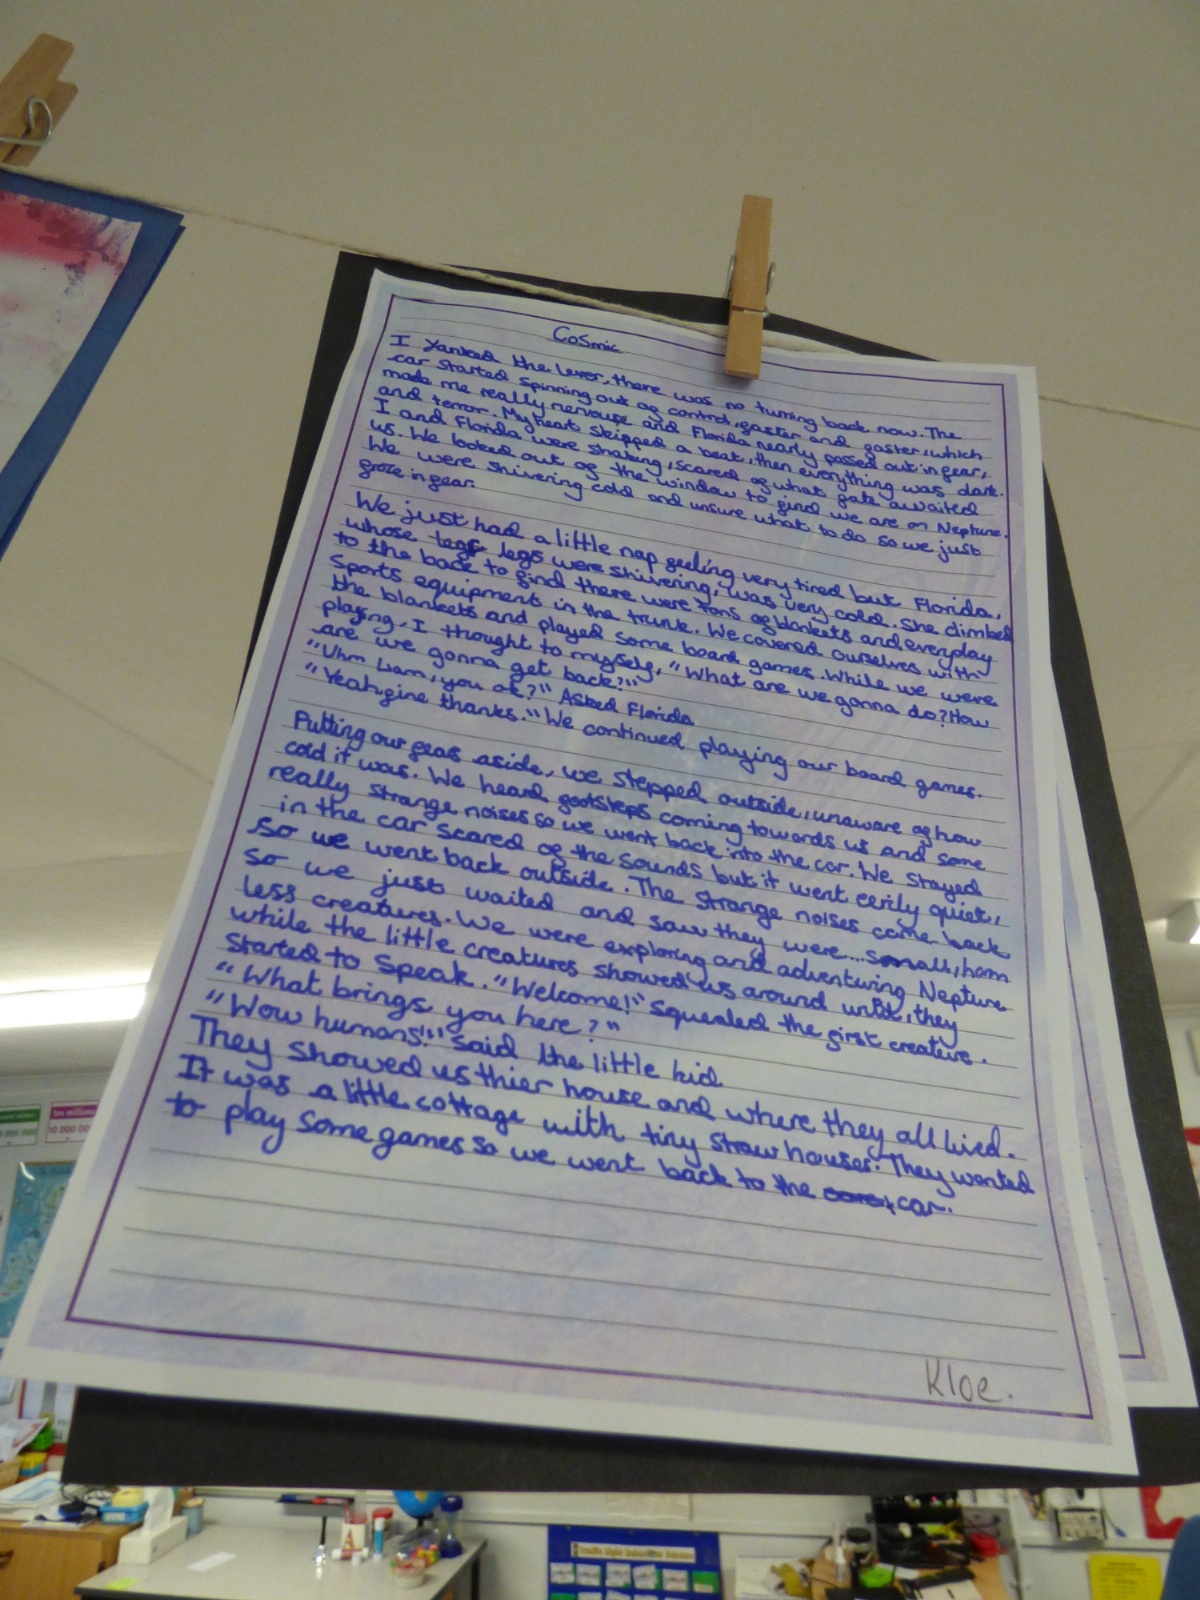 Cosmic
I Yanked the lever, there was no turning back now. The
car started spinning out of control, faster and faster, which
made me really nervous and Florida nearly passed out in fear,
and terror. My heart skipped a beat, then everything was dark.
I and Florida were shaking, scared of what fate awaited
us. We looked out of the window to find we are on Neptune.
We were shivering cold and unsure what to do so we just
froze in fear.
We just had a little nap feeling very tired but Florida,
whose legs were shivering, was very cold. She climbed
to the back to find there were tons of blankets and everyday
Sports equipment in the trunk. We covered ourselves with
the blankets and played some board games. While we were
playing, I thought to myself, "What are we gonna do? How
are we gonna get back?!"
"Uhm Liam, you ok?" Asked Florida
"Yeah, fine thanks." We continued playing our board games.
Putting our fears aside, we stepped outside, unaware of how
cold it was. We heard footsteps coming towards us and some
really strange noises so we went back into the car. We stayed
in the car scared of the sounds but it went eerily quiet,
so we went back outside. The strange noises came back
so we just waited and saw they were... small, harm
less creatures. We were exploring and adventuring Neptune
while the little creatures showed us around until, they
started to speak. "Welcome!" squealed the first creature.
"What brings you here?"
"Wow humans!" said the little kid
They showed us thier house and where they all lived.
It was a little cottage with tiny straw houses. They wanted
to play some games so we went back to the car.
Kloe.